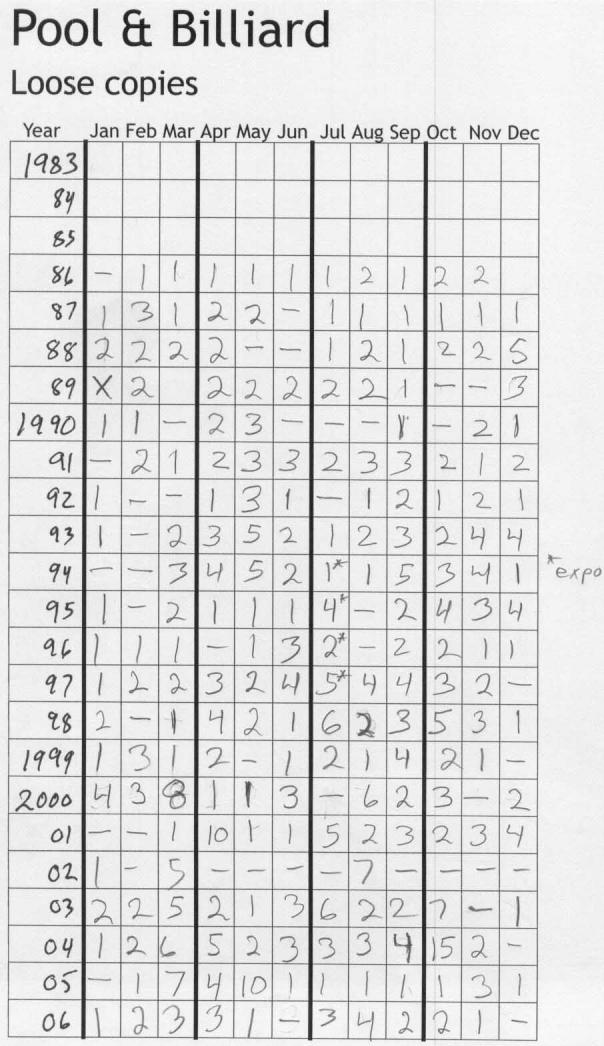 Pool & Billiard
Loose copies
Year Jan Feb Mar Apr May Jun Jul Aug Sep Oct Nov Dec
1983
84
85
86 – 1 1 1 1 1 1 2 1 2 2
87 1 3 1 2 2 – 1 1 1 1 1 1
88 2 2 2 2 – – 1 2 1 2 2 5
89 X 2 2 2 2 2 2 1 – – 3
1990 1 1 – 2 3 – – – 1 – 2 1
91 – 2 1 2 3 3 2 3 3 2 1 2
92 1 – – 1 3 1 – 1 2 1 2 1
93 1 – 2 3 5 2 1 2 3 2 4 4
94 – – 3 4 5 2 1* 1 5 3 4 1 *expo
95 1 – 2 1 1 1 4* – 2 4 3 4
96 1 1 1 – 1 3 2* – 2 2 1 1
97 1 2 2 3 2 4 5* 4 4 3 2 –
98 2 – 1 4 2 1 6 2 3 5 3 1
1999 1 3 1 2 – 1 2 1 4 2 1 –
2000 4 3 8 1 1 3 – 6 2 3 – 2
01 – – 1 10 1 1 5 2 3 2 3 4
02 1 – 5 – – – – 7 – – – –
03 2 2 5 2 1 3 6 2 2 7 – 1
04 1 2 6 5 2 3 3 3 4 15 2 –
05 – 1 7 4 10 1 1 1 1 1 3 1
06 1 2 3 3 1 – 3 4 2 2 1 –